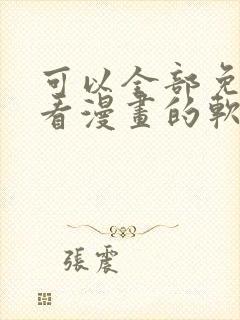 可以全部免
看漫畫的軟
張震